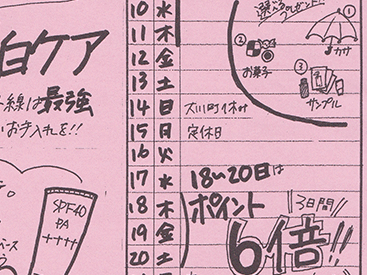 白ケア
線は最強
お手入れを!!
SPF40
PA
++++
ベース
10 水
11 木
12 金
13 土
14 日 大川町休み
15 月 定休日
16 火
17 水 18〜20日は
18 木 ポイント 3日間
19 金 6倍!!
20 土
選べるプレゼント!
①
カサ
②
お菓子
③
サンプル